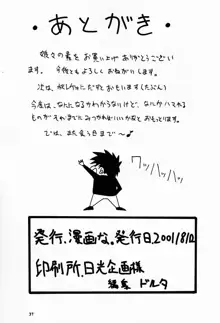 ・あとがき・
娘々の素をお買い上げありがとうござい
ます。今後ともよろしくおねがいします。
次は、
だすとおもいます(たぶん)
今度は、なんになるかわからないけど、なにかハマれる
ものがそれまでにみつかればいいかなとおもっとります。
では、また会う日まで〜♪
ワッハッハッ
発行.漫画な。発行日2001/8/12
印刷所.日光企画様
編集 ドルタ
37